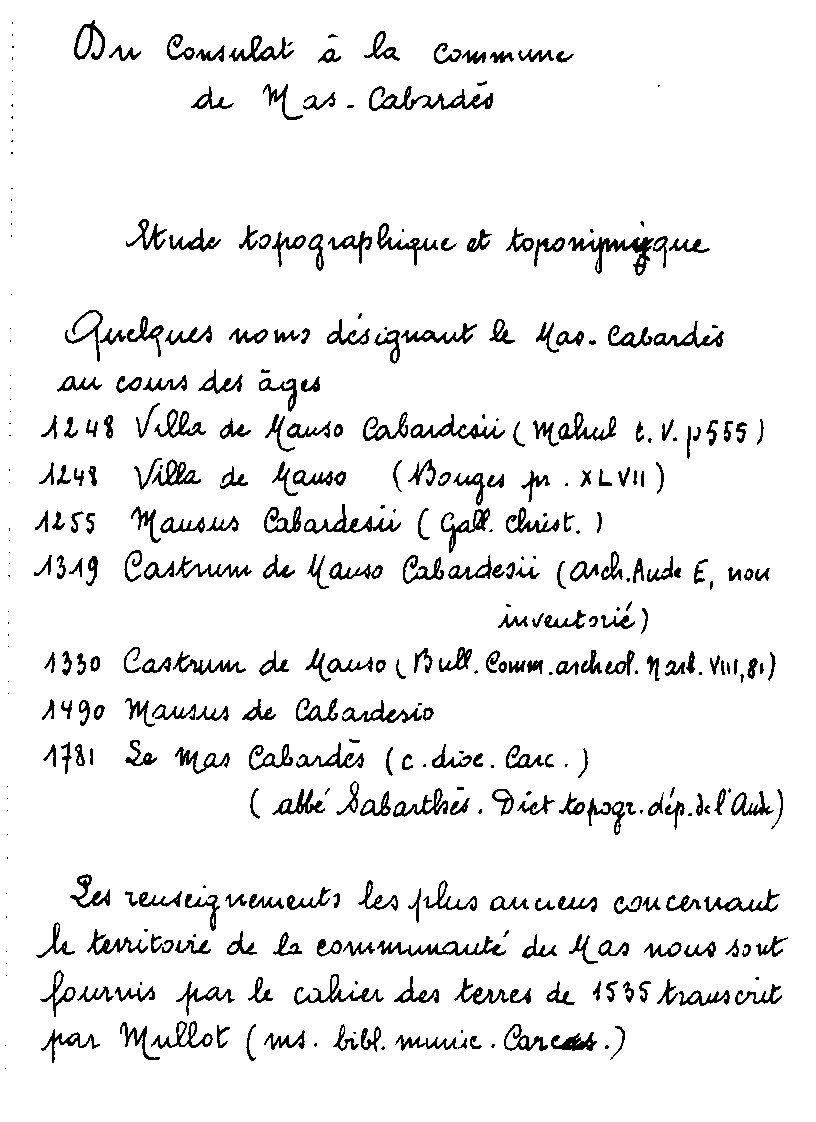 Du Consulat à la commune
de Mas-Cabardès
Etude topographique et toponymique
Quelques noms désignant le Mas-Cabardès
au cours des âges
1248 Villa de Manso Cabardesii (Mahul t. V. p 555)
1248 Villa de Manso (Bouges pr. XLVII)
1255 Mansus Cabardesii (Gall. Christ.)
1319 Castrum de Manso Cabardesii (Arch. Aude E, non
inventorié)
1330 Castrum de Manso (Bull. Comm. archeol. Narb. VIII, 81)
1490 Mansus de Cabardesio
1781 Le Mas Cabardès (c. dioc. Carc.)
(abbé Sabarthès. Dict topogr. dép. de l'Aude)
Les renseignements les plus anciens concernant
le territoire de la communauté du Mas nous sont
fournis par le cahier des terres de 1535 transcrit
par Mullot (ms. bibl. munic. Carcas.)